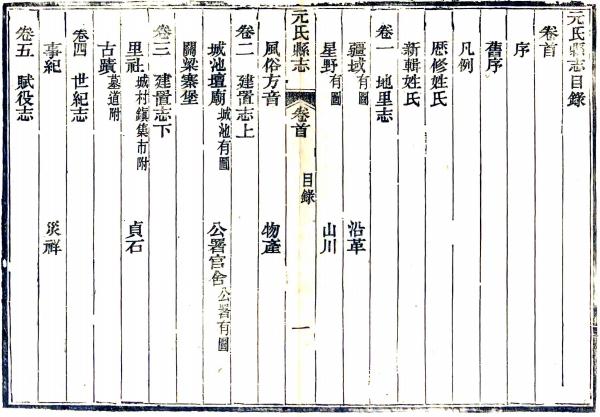 元氏縣志目錄
卷首
序
舊序
凡例
歷修姓氏
新輯姓氏
卷一 地里志
疆域有圖 沿革
星野有圖 山川
風俗方音 物產
元氏縣志 卷首 目錄 一
卷二 建置志上
城池壇廟城池有圖 公署官舍公署有圖
關梁寨堡
卷三 建置志下
里社城村鎮集市附 貞石
古蹟墓道附
卷四 世紀志
事紀 災祥
卷五 賦役志